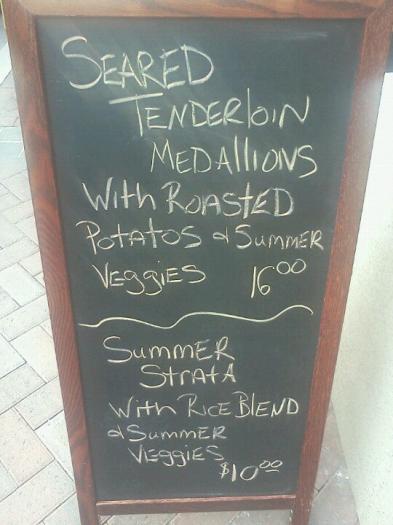 SEARED
TENDERloiN
MEDAllIONS
With ROASTED
POTATOS & SUMMER
VEGGIES 16.00
SUMMER
STRATA
With RICE BLEND
& SUMMER
VEGGIES
$10.00